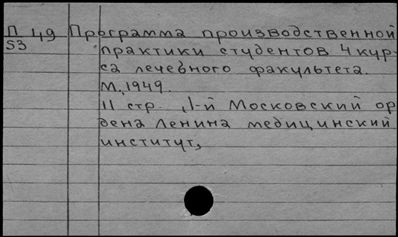 П 49 Программа производственной
53 практики студентов 4 кур-
са лечебного факультета.
М., 1949.
11 стр. „1-й Московский ор
дена Ленина медицинский
институт„